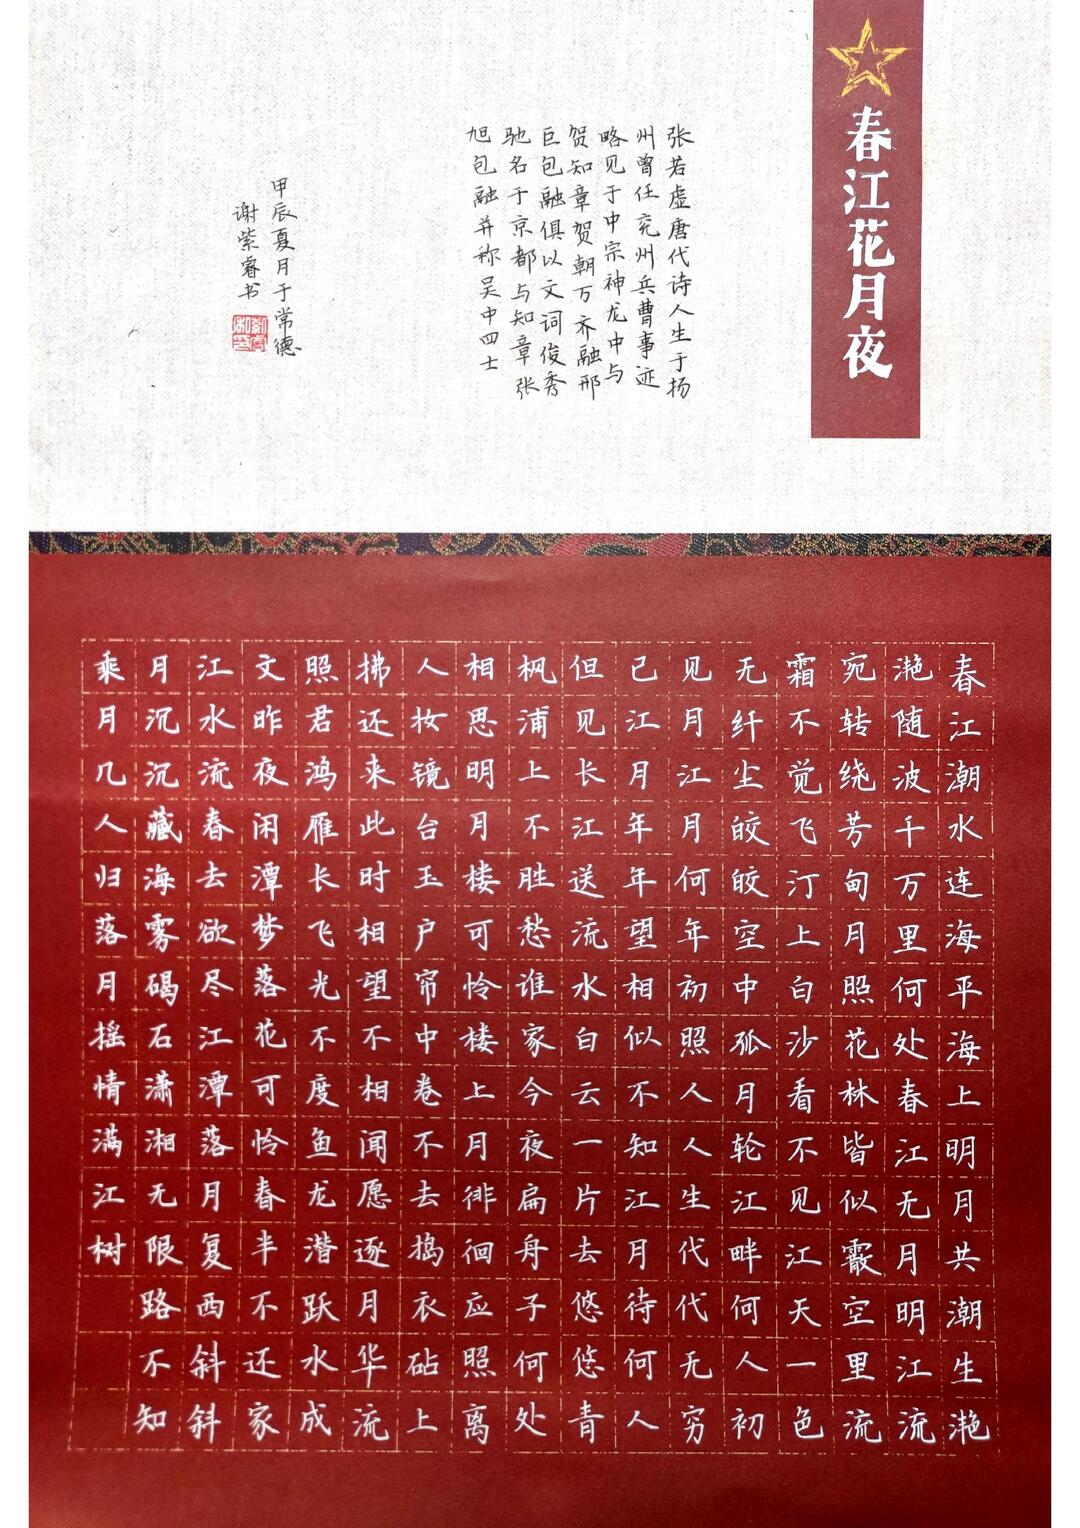 春江花月夜
张若虚唐代诗人生于扬
州曾任兖州兵曹事迹
略见于中宗神龙中与
贺知章贺朝万齐融邢
巨包融俱以文词俊秀
驰名于京都与知章张
旭包融并称吴中四士
甲辰夏月于常德
谢紫睿书
春江潮水连海平海上明月共潮生滟
滟随波千万里何处春江无月明江流
宛转绕芳甸月照花林皆似霰空里流
霜不觉飞汀上白沙看不见江天一色
无纤尘皎皎空中孤月轮江畔何人初
见月江月何年初照人人生代代无穷
已江月年年望相似不知江月待何人
但见长江送流水白云一片去悠悠青
枫浦上不胜愁谁家今夜扁舟子何处
相思明月楼可怜楼上月徘徊应照离
人妆镜台玉户帘中卷不去捣衣砧上
拂还来此时相望不相闻愿逐月华流
照君鸿雁长飞光不度鱼龙潜跃水成
文昨夜闲潭梦落花可怜春半不还家
江水流春去欲尽江潭落月复西斜斜
月沉沉藏海雾碣石潇湘无限路不知
乘月几人归落月摇情满江树